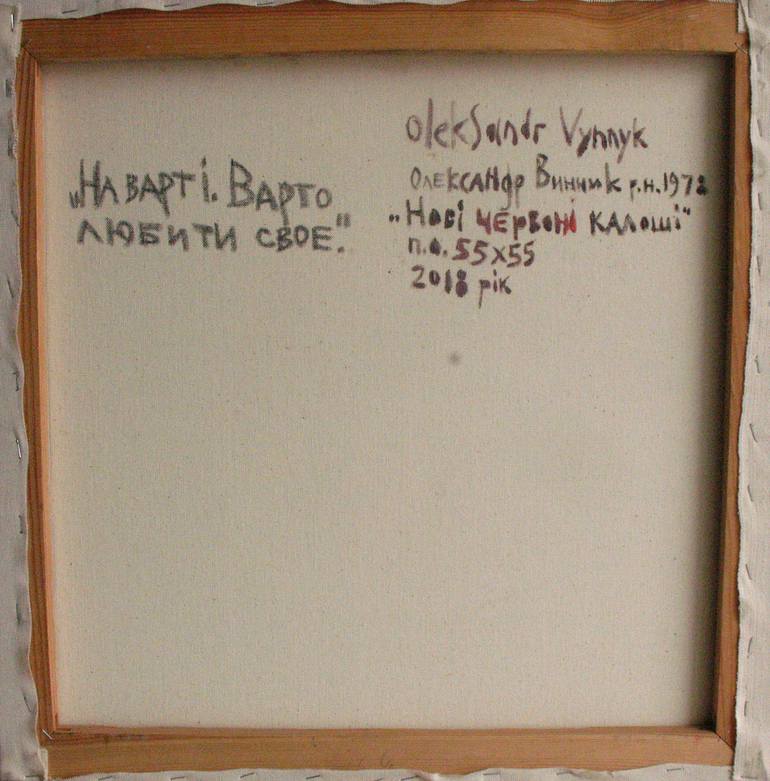 „На варті. Варто
любити своє."
Oleksandr Vynnyk
Олександр Винник р.н. 1972
„Нові червоні калоші"
п.о. 55x55
2018 рік